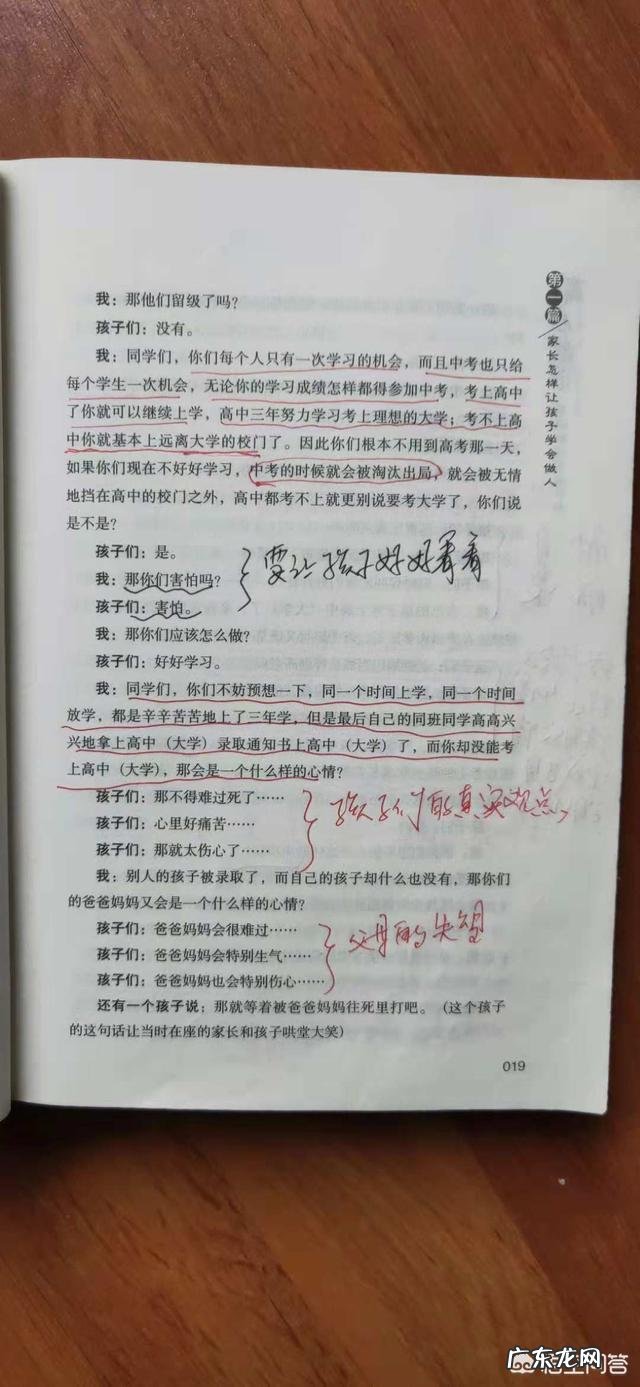 我：那他们留级了吗？
孩子们：没有。
我：同学们，你们每个人只有一次学习的机会，而且中考也只给
每个学生一次机会，无论你的学习成绩怎样都得参加中考，考上高中
了你就可以继续上学，高中三年努力学习考上理想的大学；考不上高
中你就基本上远离大学的校门了。因此你们根本不用到高考那一天，
如果你们现在不好好学习，中考的时候就会被淘汰出局，就会被无情
地挡在高中的校门之外，高中都考不上就更别说要考大学了，你们说
是不是？
孩子们：是。
我：那你们害怕吗？
孩子们：害怕。
要让孩子好好看看
我：那你们应该怎么做？
孩子们：好好学习。
我：同学们，你们不妨预想一下，同一个时间上学，同一个时间
放学，都是辛辛苦苦地上了三年学，但是最后自己的同班同学高高兴
兴地拿上高中（大学）录取通知书上高中（大学）了，而你却没能考
上高中（大学），那会是一个什么样的心情？
孩子们：那不得难过死了……
孩子们：心里好痛苦……
孩子们：那就太伤心了……
孩子们的真实观点
我：别人的孩子被录取了，而自己的孩子却什么也没有，那你们
的爸爸妈妈又会是一个什么样的心情？
孩子们：爸爸妈妈会很难过……
孩子们：爸爸妈妈会特别生气……
孩子们：爸爸妈妈也会特别伤心……
父母的失望
还有一个孩子说：那就等着被爸爸妈妈往死里打吧。（这个孩子
的这句话让当时在座的家长和孩子哄堂大笑）
第一篇
家长怎样让孩子学会做人
019
悟空问答
广东龙网